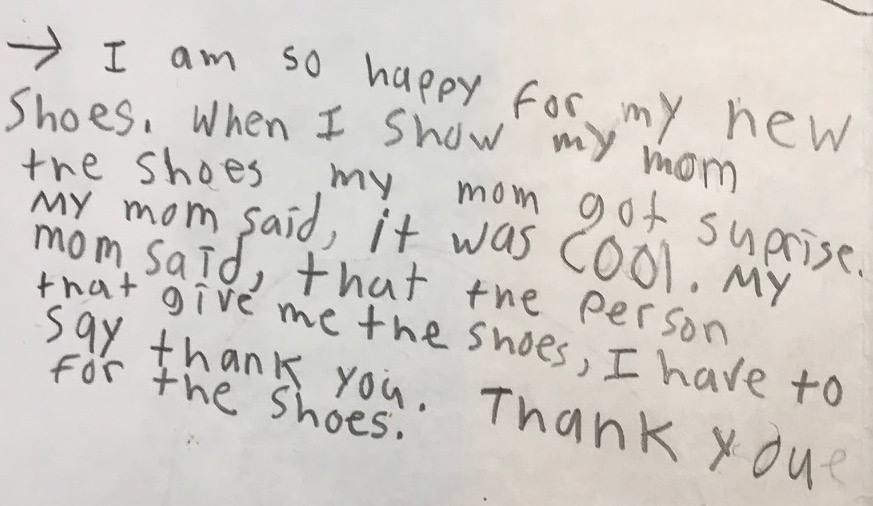 → I am so happy for my new
Shoes. When I show my mom
the shoes my mom got suprise.
My mom said, it was COOl. My
mom said, that the person
that give me the shoes, I have to
say thank you.
for the shoes. Thank you